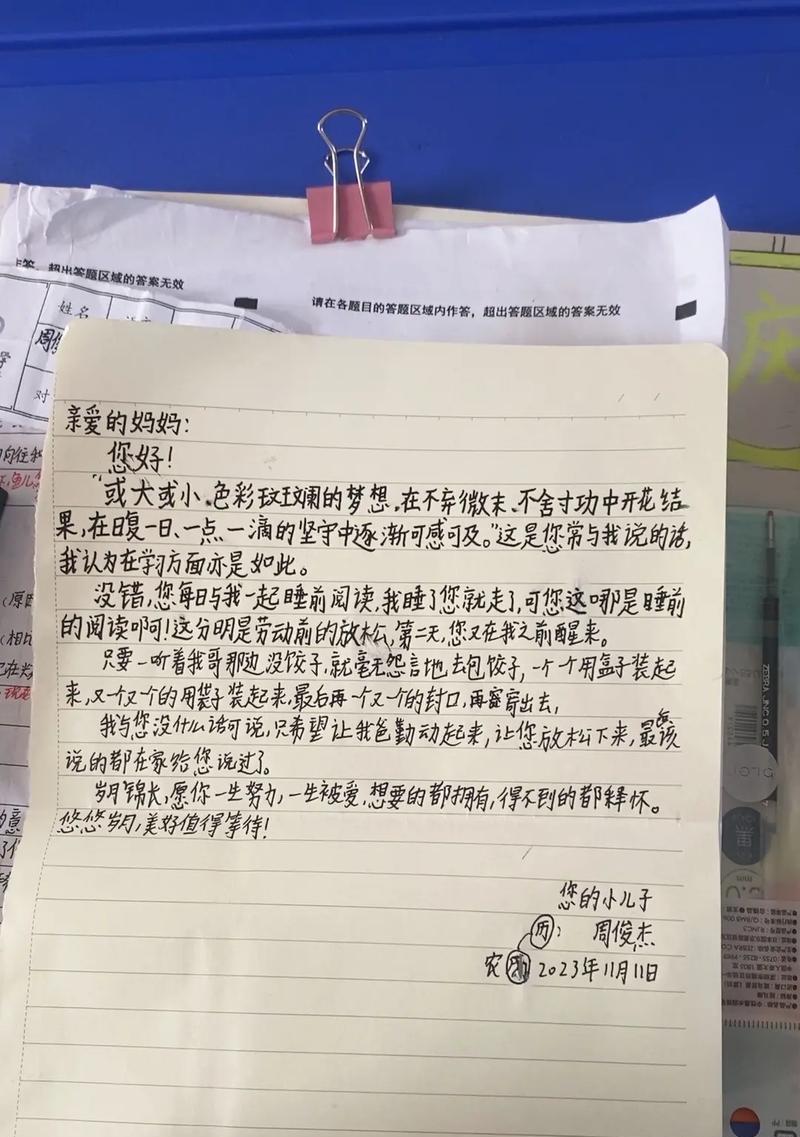 作答，超出答题区域的答案无效
请在各题目的答题区域内作答，超出答题区域的答案无效
姓名
周俊
对
亲爱的妈妈：
您好！
“或大或小、色彩斑斓的梦想，在不弃微末、不舍寸功中开花结
果，在日复一日、一点一滴的坚守中逐渐可感可及。”这是您常与我说的话，
我认为在学习方面亦是如此。
没错，您每日与我一起睡前阅读，我睡了您就走了，可您这哪是睡前
的阅读啊啊！这分明是劳动前的放松，第二天，您又在我之前醒来。
只要一听着我哥那边没饺子，就毫无怨言地去包饺子，一个个用盒子装起
来，又一个又一个的用袋子装起来，最后再一个又一个的封口，再寄出去，
我与您没什么话可说，只希望让我爸勤动起来，让您放松下来，最该
说的都在家给您说过了。
岁月锦长，愿你一生努力，一生被爱，想要的都拥有，得不到的都释怀。
悠悠岁月，美好值得等待！
您的小儿子
丙： 周俊杰
农 2023年11月11日
庆
黑